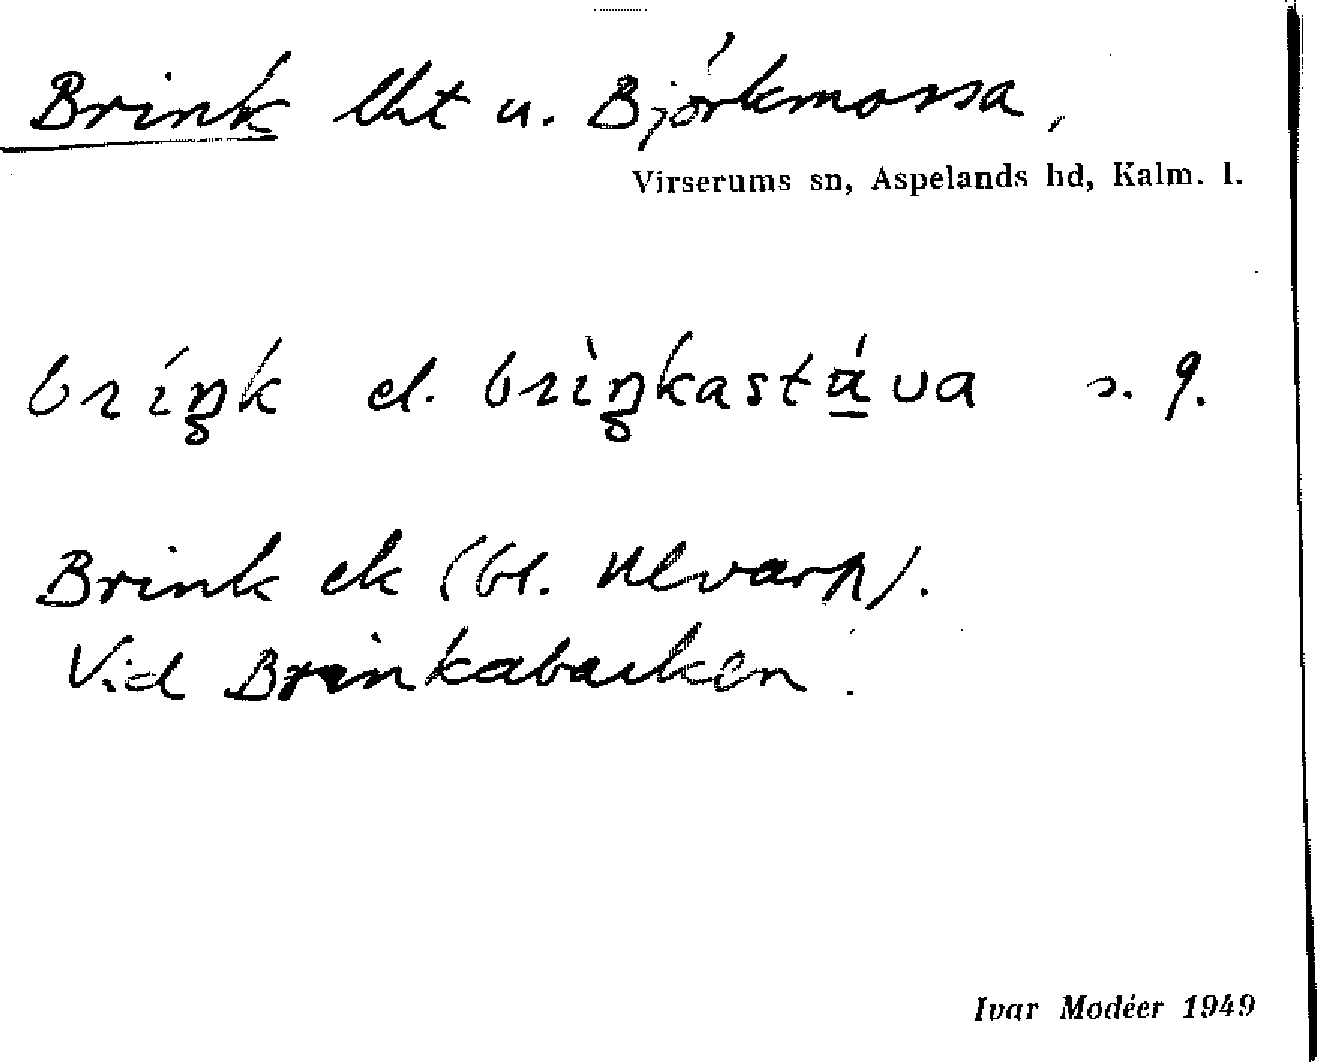 Brink lht u. Björkmossa,
Virserums sn, Aspelands hd, Kalm. l.
bríŋk el. brìŋkastáva s. g.
Brink ek (bl. Ulvarp).
Vid Brinkabacken.
Ivar Modéer 1949